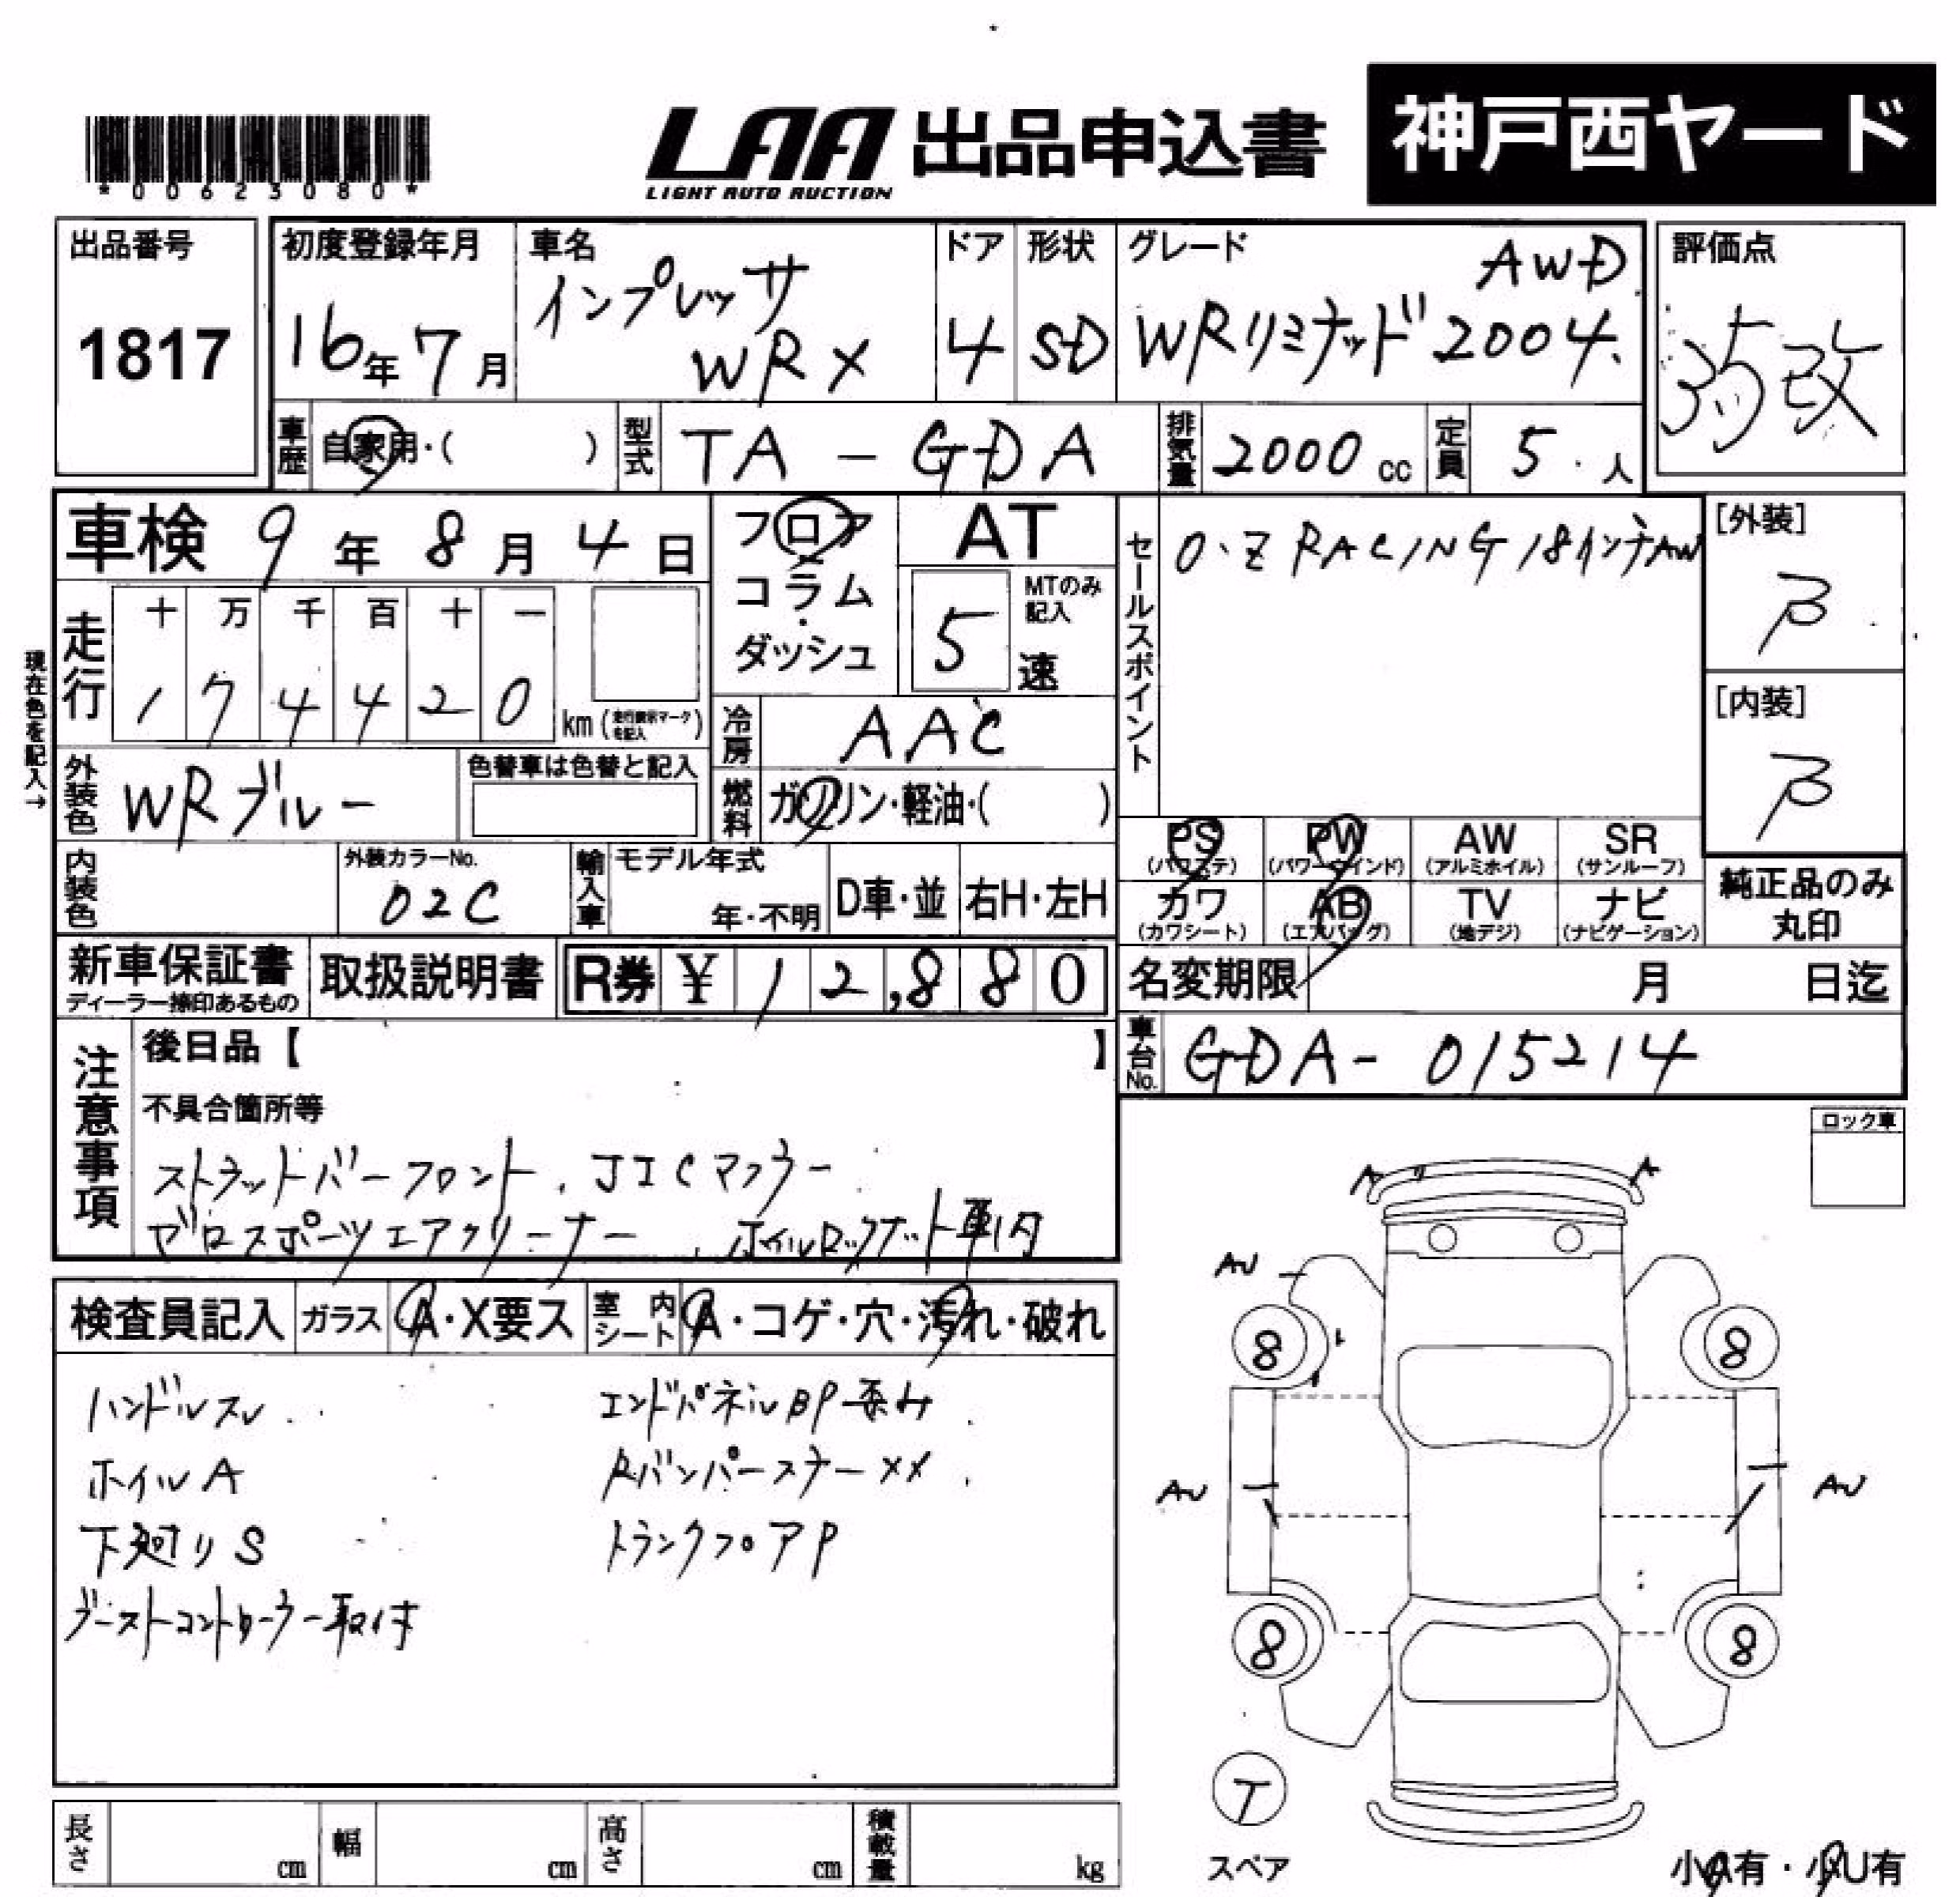 *00623080*
LAA 出品申込書
LIGHT AUTO AUCTION
神戸西ヤード
出品番号
1817
初度登録年月
16年7月
車名
インプレッサ
WRX
ドア
4
形状
SD
グレード
AWD
WRリミテッド2004
評価点
改
車歴
自家用・( )
型式
TA-GDA
排気量
2000cc
定員
5人
車検 9年8月4日
現在色を記入→
走行
十 万 千 百 十 一
1 7 4 4 2 0
km(走行表示マークを記入)
フロア
コラム
・
ダッシュ
AT
5
MTのみ
記入
速
冷房
AAC
燃料
ガソリン・軽油・( )
セールスポイント
O・Z RACING 18インチAW
[外装]
B
[内装]
B
外装色
WRブルー
色替車は色替と記入
内装色
外装カラーNo.
02C
輸入車
モデル年式
年・不明
D車・並
右H・左H
PS
(パワステ)
PW
(パワーウインド)
AW
(アルミホイル)
SR
(サンルーフ)
カワ
(カワシート)
AB
(エアバッグ)
TV
(地デジ)
ナビ
(ナビゲーション)
純正品のみ
丸印
新車保証書
ディーラー捺印あるもの
取扱説明書
R券 ¥12,880
名変期限 月 日迄
車台No.
GDA-015214
注意事項
後日品【 】
不具合箇所等
ストラットバーフロント、JICマフラー
ゼロスポーツエアクリーナー、ホイルロックナット車内
ロック車
検査員記入
ガラス
A・X要ス
室内シート
A・コゲ・穴・汚れ・破れ
ハンドルスレ
エンドパネルBP歪み
ホイルA
RバンパースナーXX
下廻りS
トランクフロアP
ブーストコントローラー取付
A
A
AU
8
8
AU
AU
8
8
T
スペア
小A有・小U有
長さ
cm
幅
cm
高さ
cm
積載量
kg